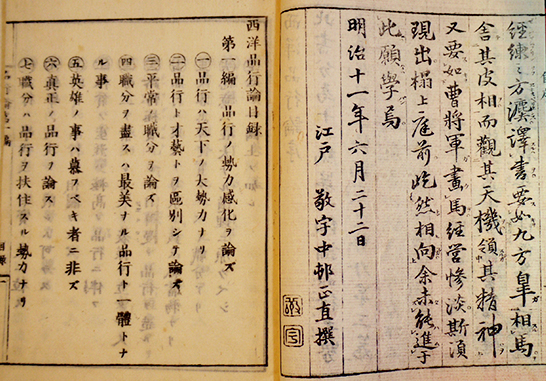 譯書要如九方皐相馬
舍其皮相而觀其天機領其精神
又要如曹將軍畫馬經營慘淡斯須
現出榻上庭前屹然相向余未能進于
此願學焉
明治十一年六月二十二日
江戸 敬宇中邨正直撰
西洋品行論目錄
第一編 品行ノ勢力感化ヲ論ズ
一 品行ハ天下ノ大勢力ナリ
二 品行ト才藝トヲ區別シテ論ズ
三 平常ノ職分ヲ論ズ
四 職分ヲ盡スハ最美ナル品行ト一體トナ
ル事
五 英雄ノ事ハ慕フベキ者ニ非ズ
六 眞正ノ品行ヲ論ズ
七 職分ハ品行ヲ扶住スル勢力ナリ